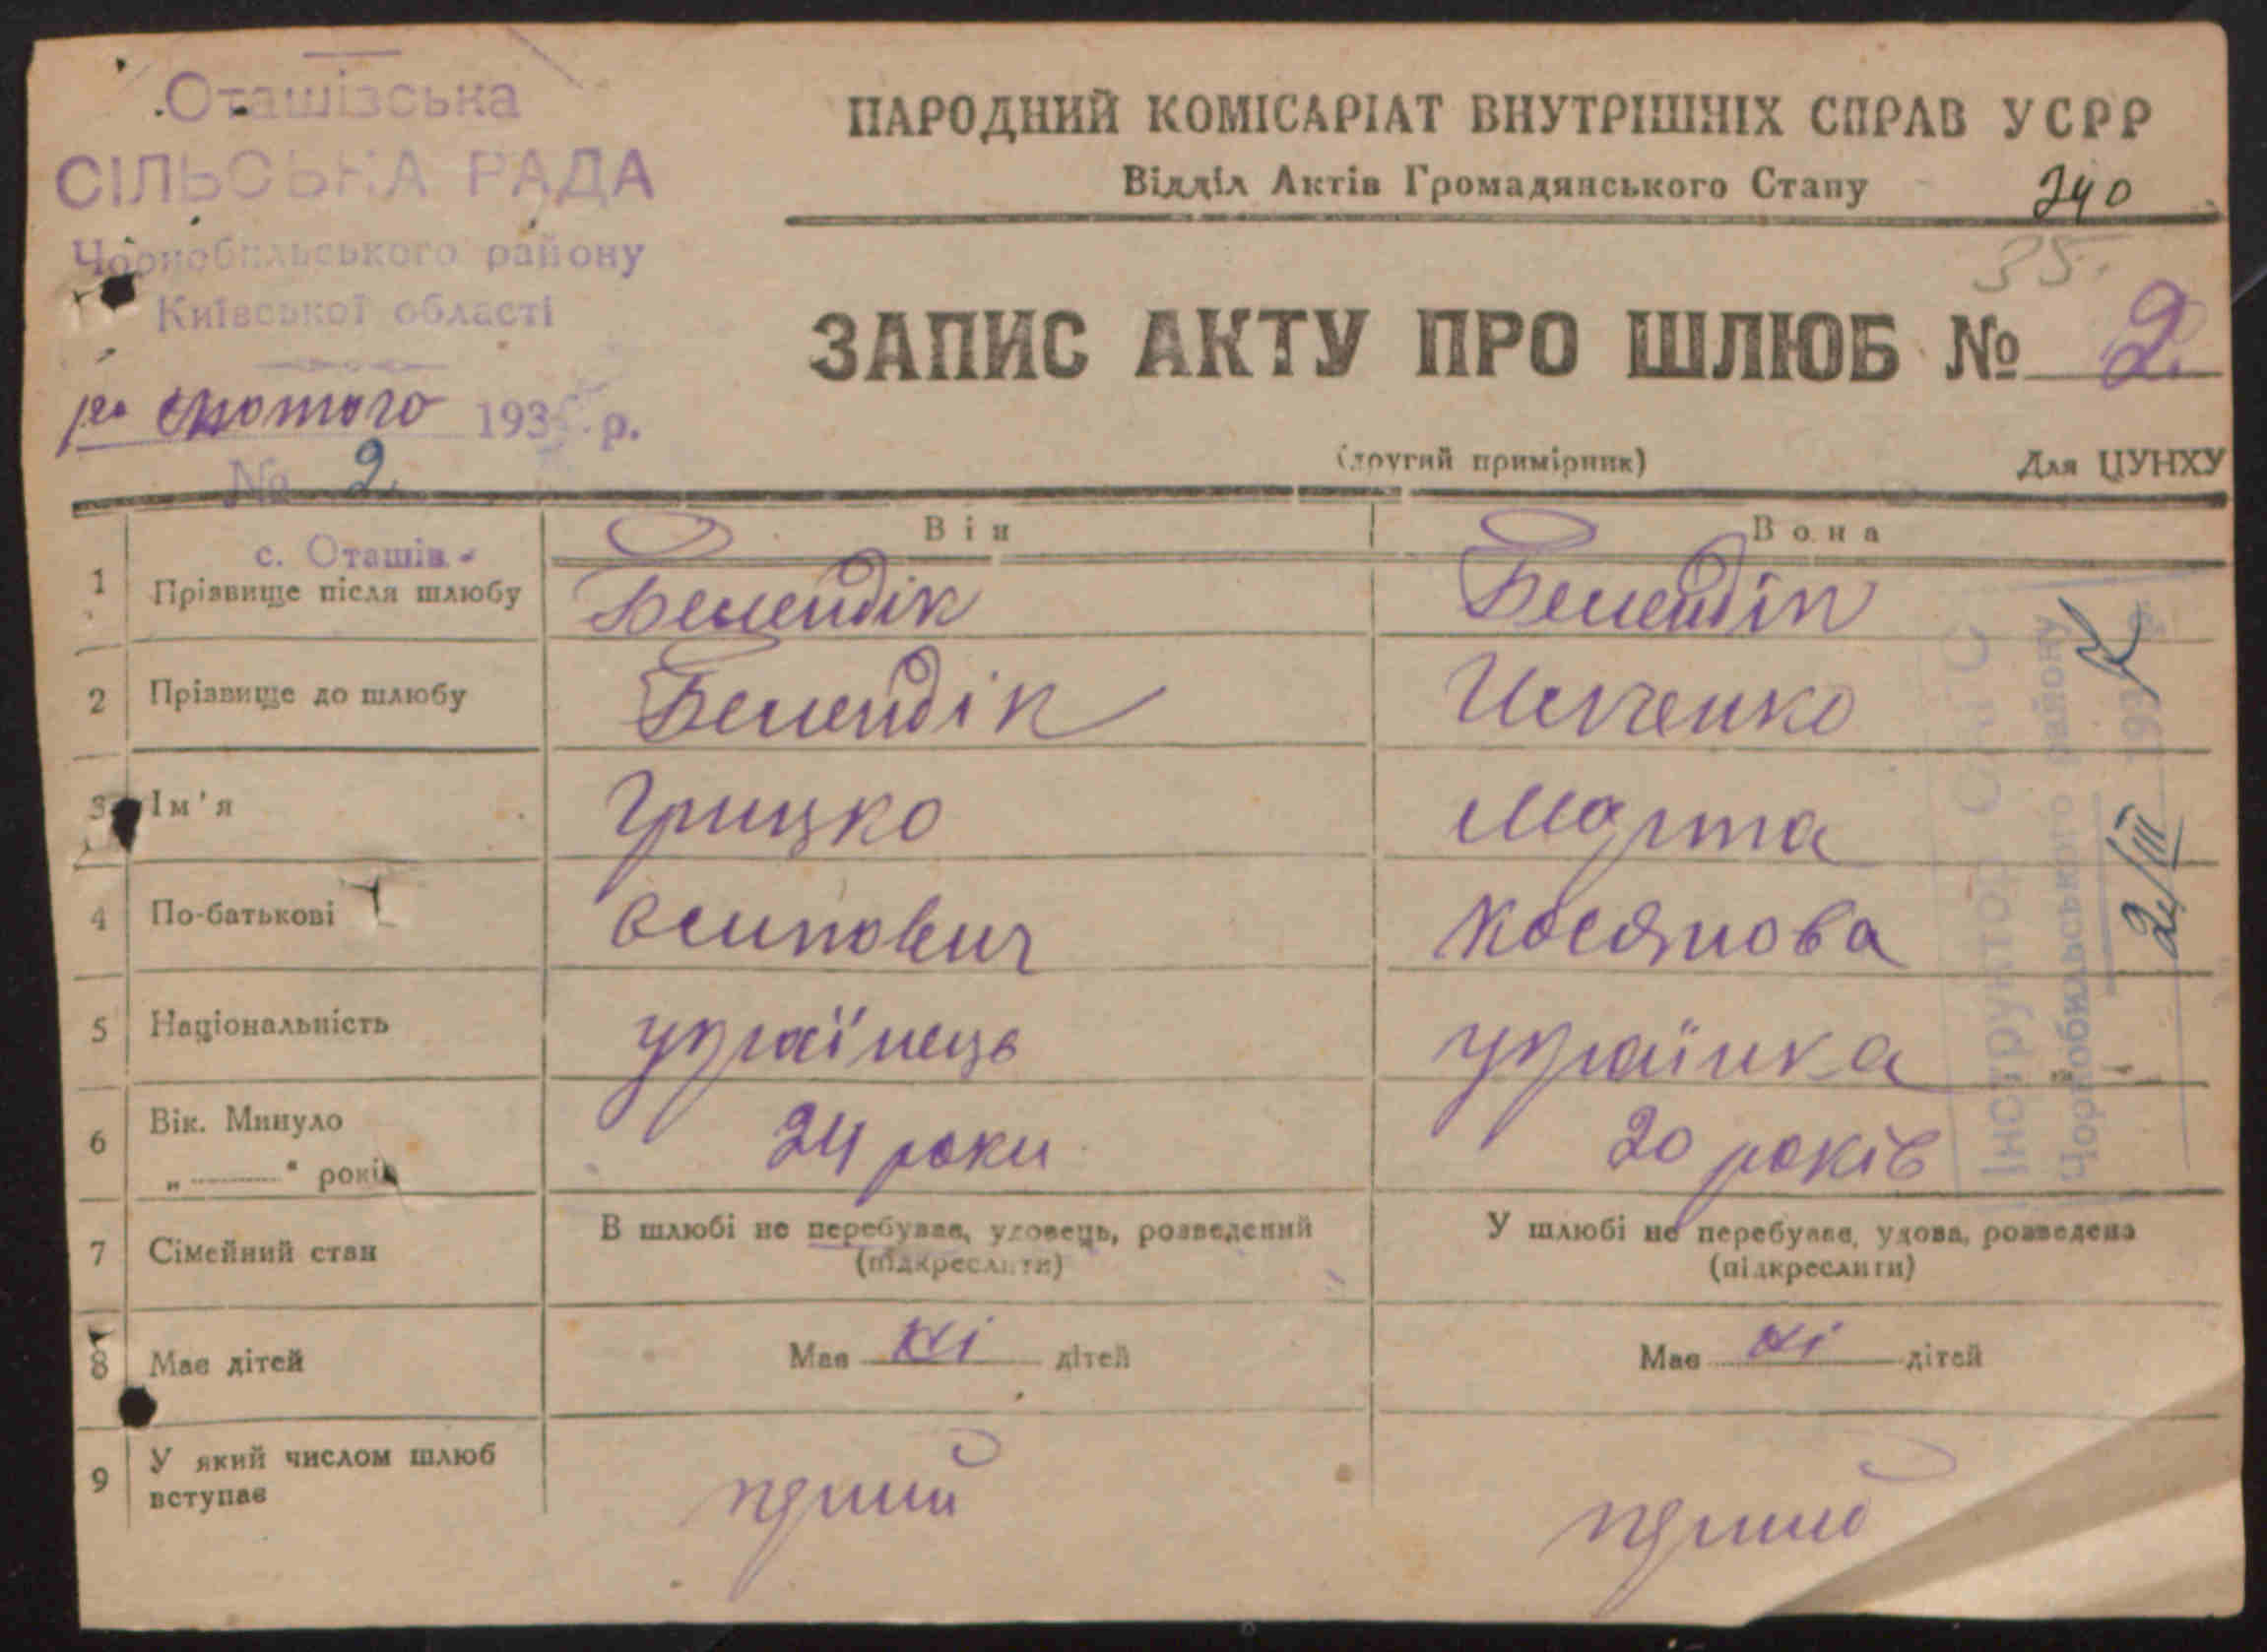 Оташівська
СІЛЬСЬКА РАДА
Чорнобильського району
Київської області
лютого 193 р.
№ 2.
НАРОДНИЙ КОМІСАРІАТ ВНУТРІШНІХ СПРАВ УСРР
Відділ Актів Громадянського Стану
240
35.
ЗАПИС АКТУ ПРО ШЛЮБ № 2.
(другий примірник)
Для ЦУНХУ
с. Оташів
Він
Вона
1 Прізвище після шлюбу Бенендік Бенендік
2 Прізвище до шлюбу Бенендік
3 Ім'я Грицко Марта
4 По-батькові Осипович Косянова
5 Національність українець українка
6 Вік. Минуло
„ “ років 24 роки 20 років
7 Сімейний стан В шлюбі не перебував, удовець, розведений У шлюбі не перебуває, удова, розведена
(підкреслити) (підкреслити)
8 Має дітей Має ні дітей Має ні дітей
9 У який числом шлюб
вступає перший перший
Інструктор ОАГС
Чорнобильського району
2/III 193 р.